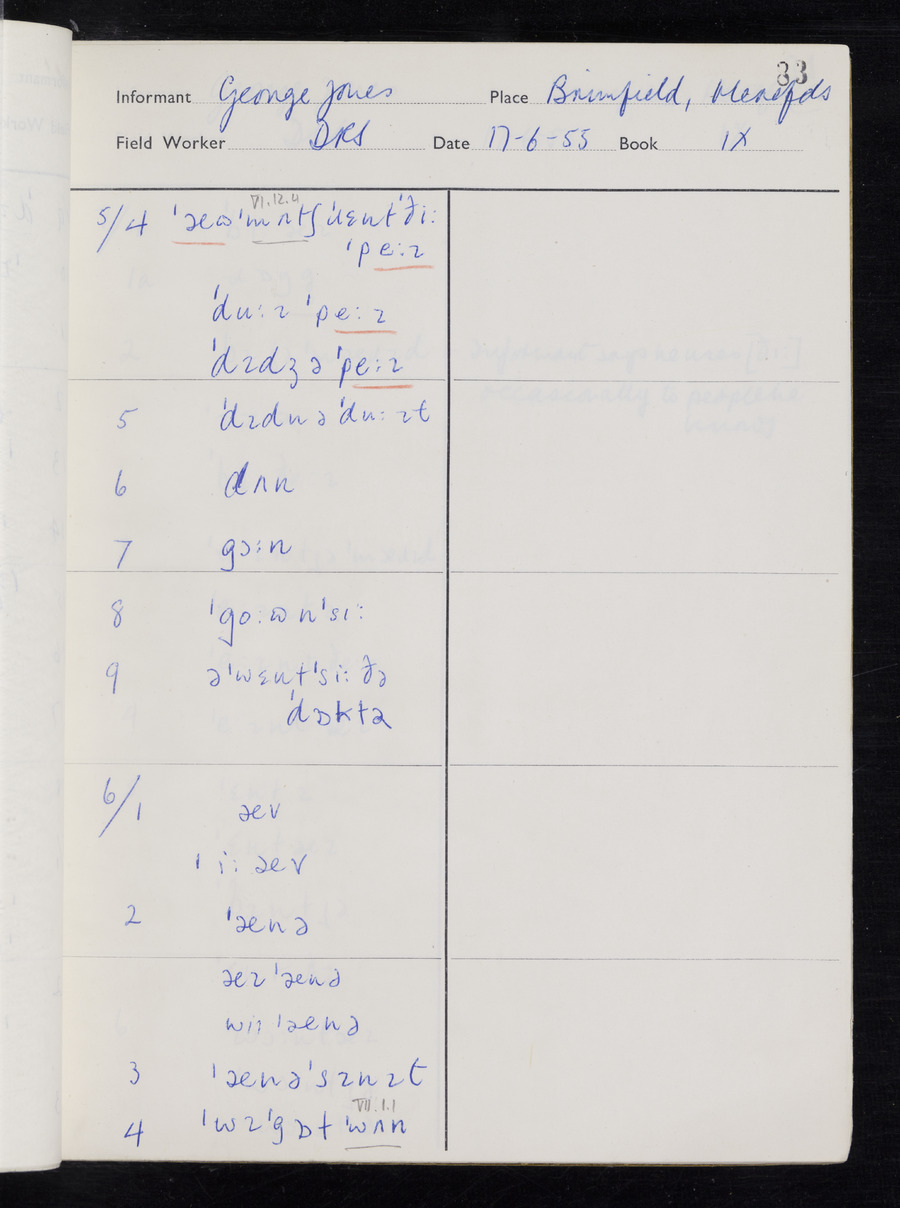 33
Informant George Jones Place Brimfield, Herefds
Field Worker DRS Date 17-6-55 Book IX
VI.12.4
5/4 ˈæʊ ˈmʌtʃ ˈɹɛnt ˈðiː
ˈpeːɪ
ˈduːɪ ˈpeːɪ
ˈdɪdʒə ˈpeːɪ
5 ˈdɪdnə ˈduːɪt
6 dʌn
7 gɔːn
8 ˈgoːʊn ˈsiː
9 əˈwɛnt ˈsiː ðə
ˈdɒktə
6/1 æv
ˈiː æv
2 ˈænə
æɪ ˈænə
wiː ˈænə
3 ˈænə ˈsɪnɪt
VII.1.1
4 ˈwɪ ˈgɒt ˈwʌn